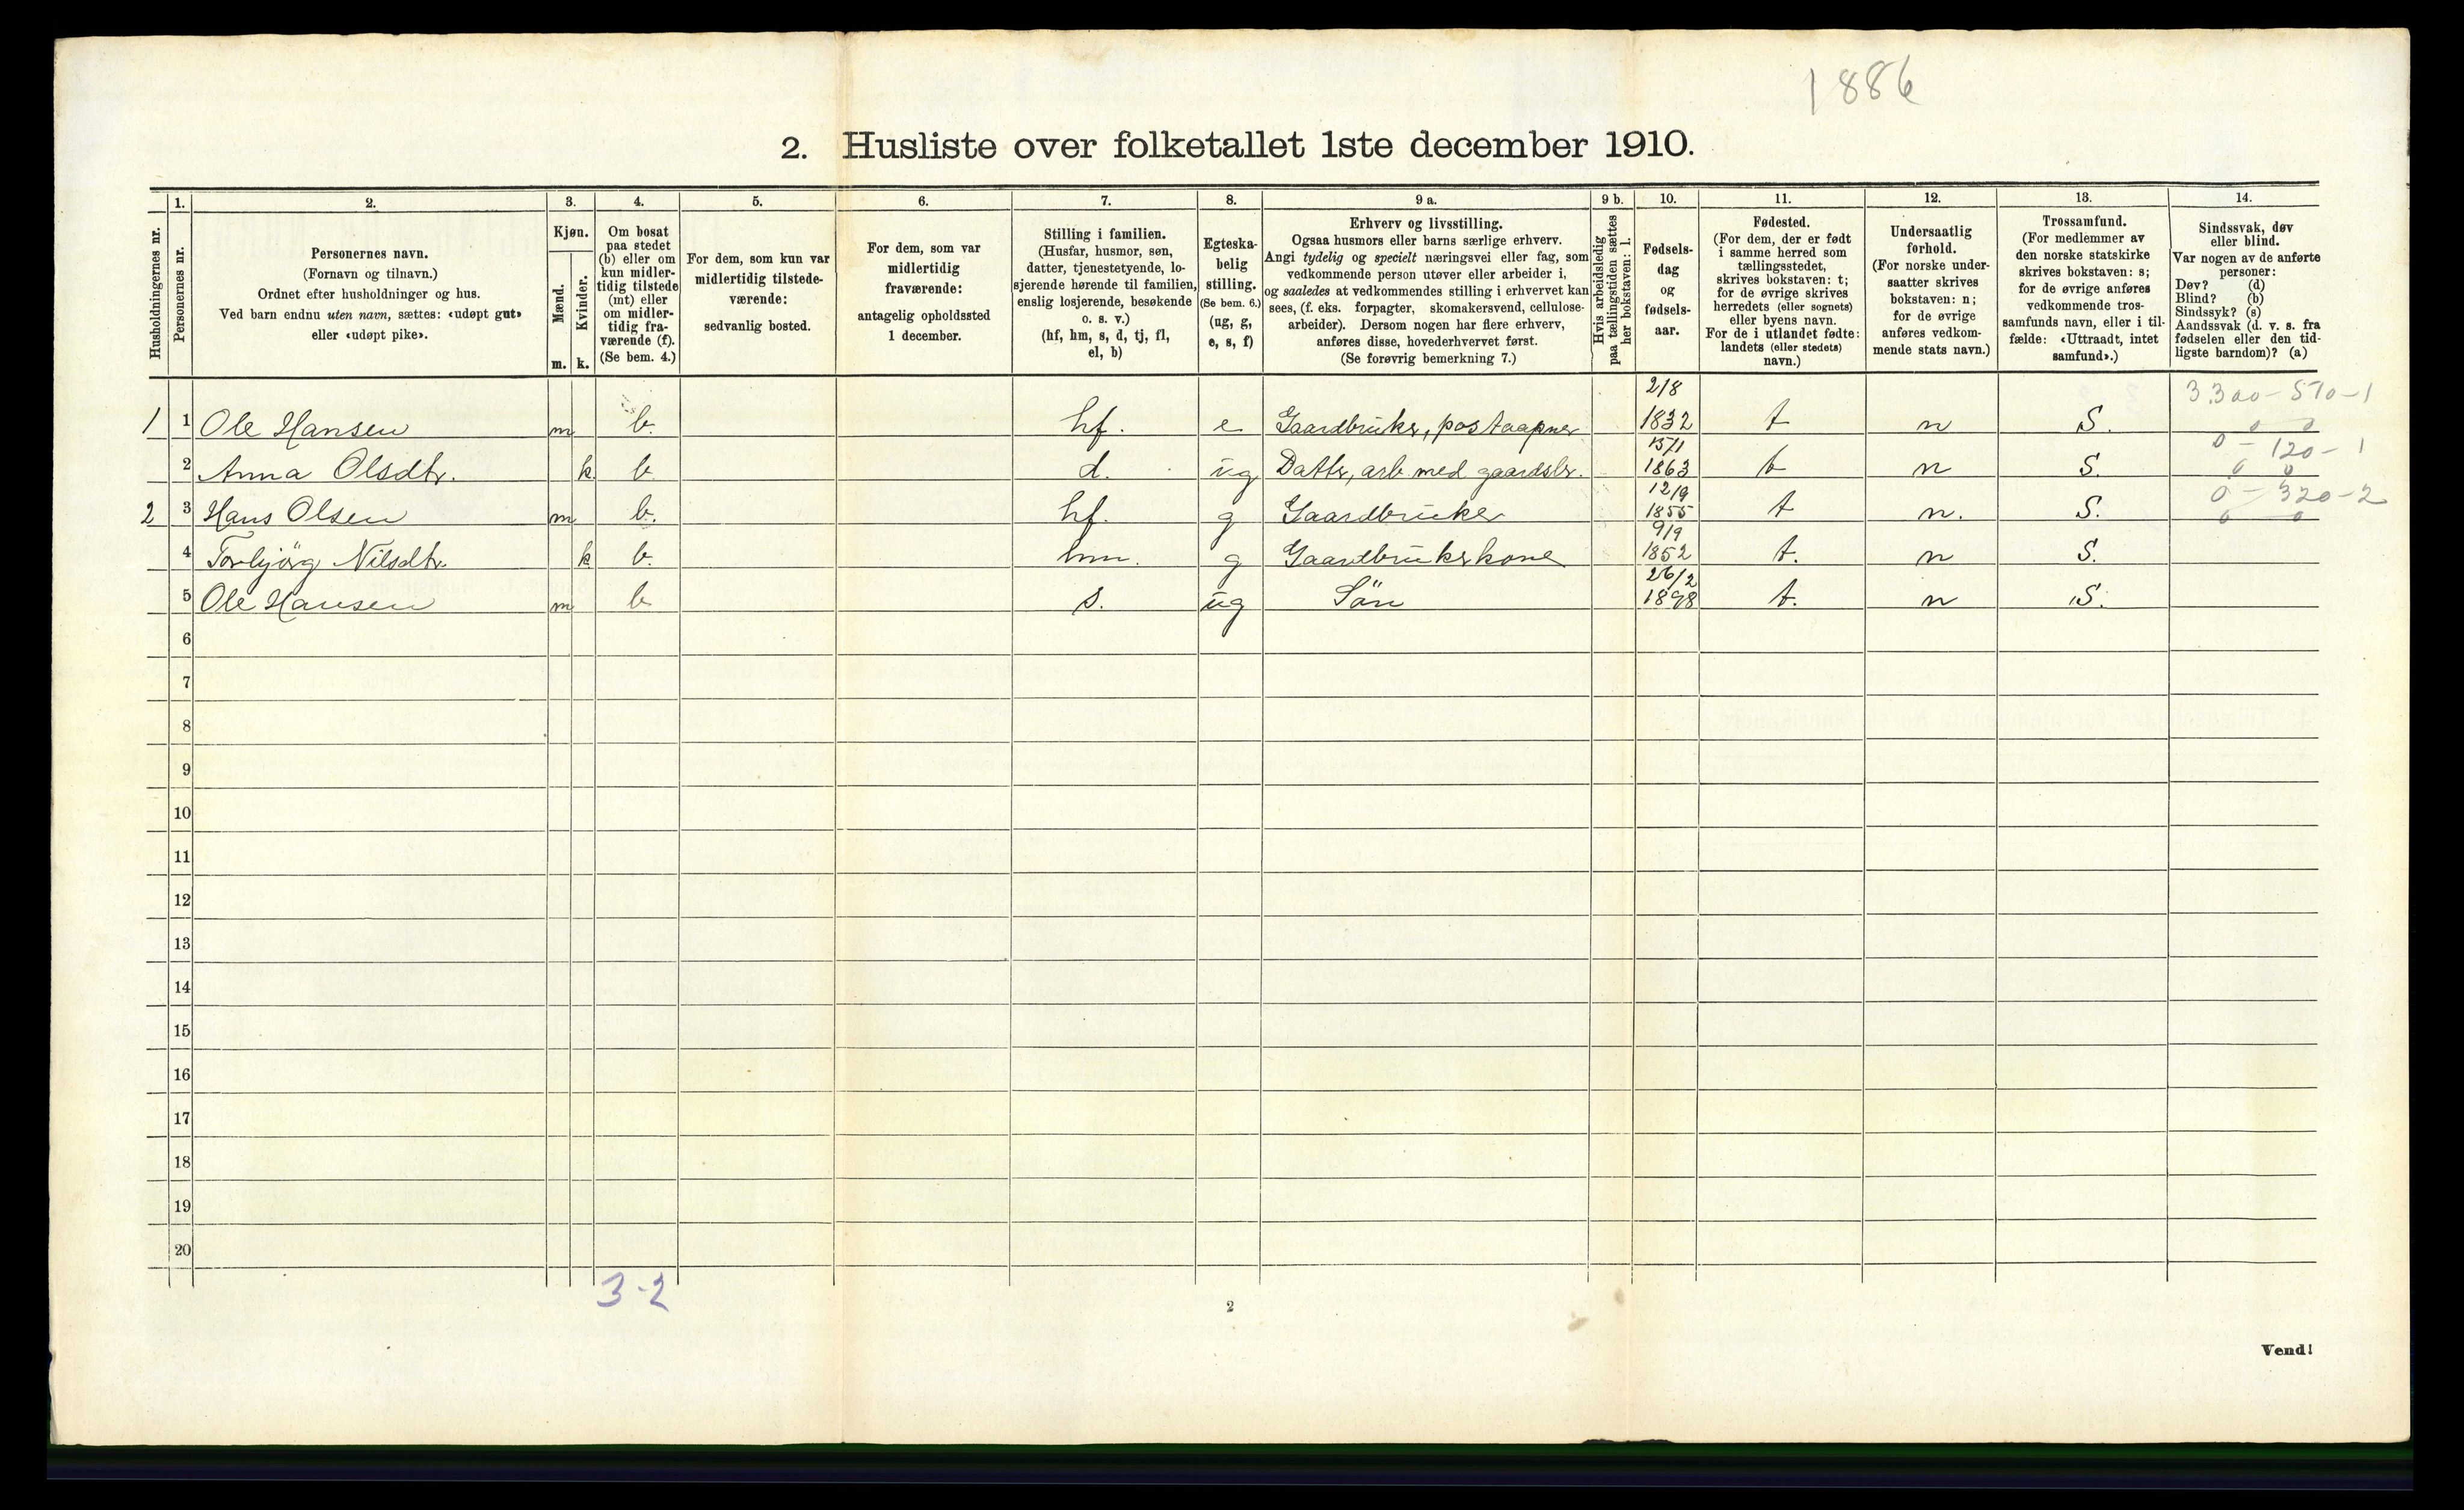 1886
2. Husliste over folketallet 1ste december 1910.
Husholdningernes nr.
1.
Personernes nr.
2.
Personernes navn.
(Fornavn og tilnavn.)
Ordnet efter husholdninger og hus.
Ved barn endnu uten navn, sættes: «udøpt gut»
eller «udøpt pike».
3.
Kjøn.
Mænd.
Kvinder.
m. k.
4.
Om bosat
paa stedet
(b) eller om
kun midler-
tidig tilstede
(mt) eller
om midler-
tidig fra-
værende (f).
(Se bem. 4.)
5.
For dem, som kun var
midlertidig tilstede-
værende:
sedvanlig bosted.
6.
For dem, som var
midlertidig
fraværende:
antagelig opholdssted
1 december.
7.
Stilling i familien.
(Husfar, husmor, søn,
datter, tjenestetyende, lo-
sjerende hørende til familien,
enslig losjerende, besøkende
o. s. v.)
(hf, hm, s, d, tj, fl,
el, b)
8.
Egteska-
belig
stilling.
(Se bem. 6.)
(ug, g,
e, s, f)
9 a.
Erhverv og livsstilling.
Ogsaa husmors eller barns særlige erhverv.
Angi tydelig og specielt næringsvei eller fag, som
vedkommende person utøver eller arbeider i,
og saaledes at vedkommendes stilling i erhvervet kan
sees, (f. eks. forpagter, skomakersvend, cellulose-
arbeider). Dersom nogen har flere erhverv,
anføres disse, hovederhvervet først.
(Se forøvrig bemerkning 7.)
9 b.
Hvis arbeidsledig
paa tællingstiden sættes
her bokstaven: l.
10.
Fødsels-
dag
og
fødsels-
aar.
11.
Fødested.
(For dem, der er født
i samme herred som
tællingsstedet,
skrives bokstaven: t;
for de øvrige skrives
herredets (eller sognets)
eller byens navn.
For de i utlandet fødte:
landets (eller stedets)
navn.)
12.
Undersaatlig
forhold.
(For norske under-
saatter skrives
bokstaven: n;
for de øvrige
anføres vedkom-
mende stats navn.)
13.
Trossamfund.
(For medlemmer av
den norske statskirke
skrives bokstaven: s;
for de øvrige anføres
vedkommende tros-
samfunds navn, eller i til-
fælde: «Uttraadt, intet
samfund».)
14.
Sindssvak, døv
eller blind.
Var nogen av de anførte
personer:
Døv? (d)
Blind? (b)
Sindssyk? (s)
Aandssvak (d. v. s. fra
fødselen eller den tid-
ligste barndom)? (a)
1 1 Ole Hansen m b. hf. e Gaardbruker, postaapner 2/8 1832 t n S. 3300-570-1 0 0
2 Anna Olsdtr. k. b. d. ug Datter, arb med gaardsbr. 15/1 1863 t n S. 0-120-1 0 0
2 3 Hans Olsen m b. hf. g Gaardbruker 12/9 1855 t n. S. 0-320-2 0 0
4 Torbjörg Nilsdtr. k b. hm. g Gaardbrukerkone 9/9 1852 t. n S.
5 Ole Hansen m b s. ug Sön 26/2 1898 t. n S.
6
7
8
9
10
11
12
13
14
15
16
17
18
19
20
3-2
2
Vend!